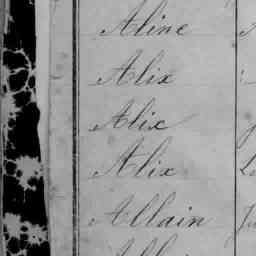 Aline
Alix
Alix
Alix
Allain